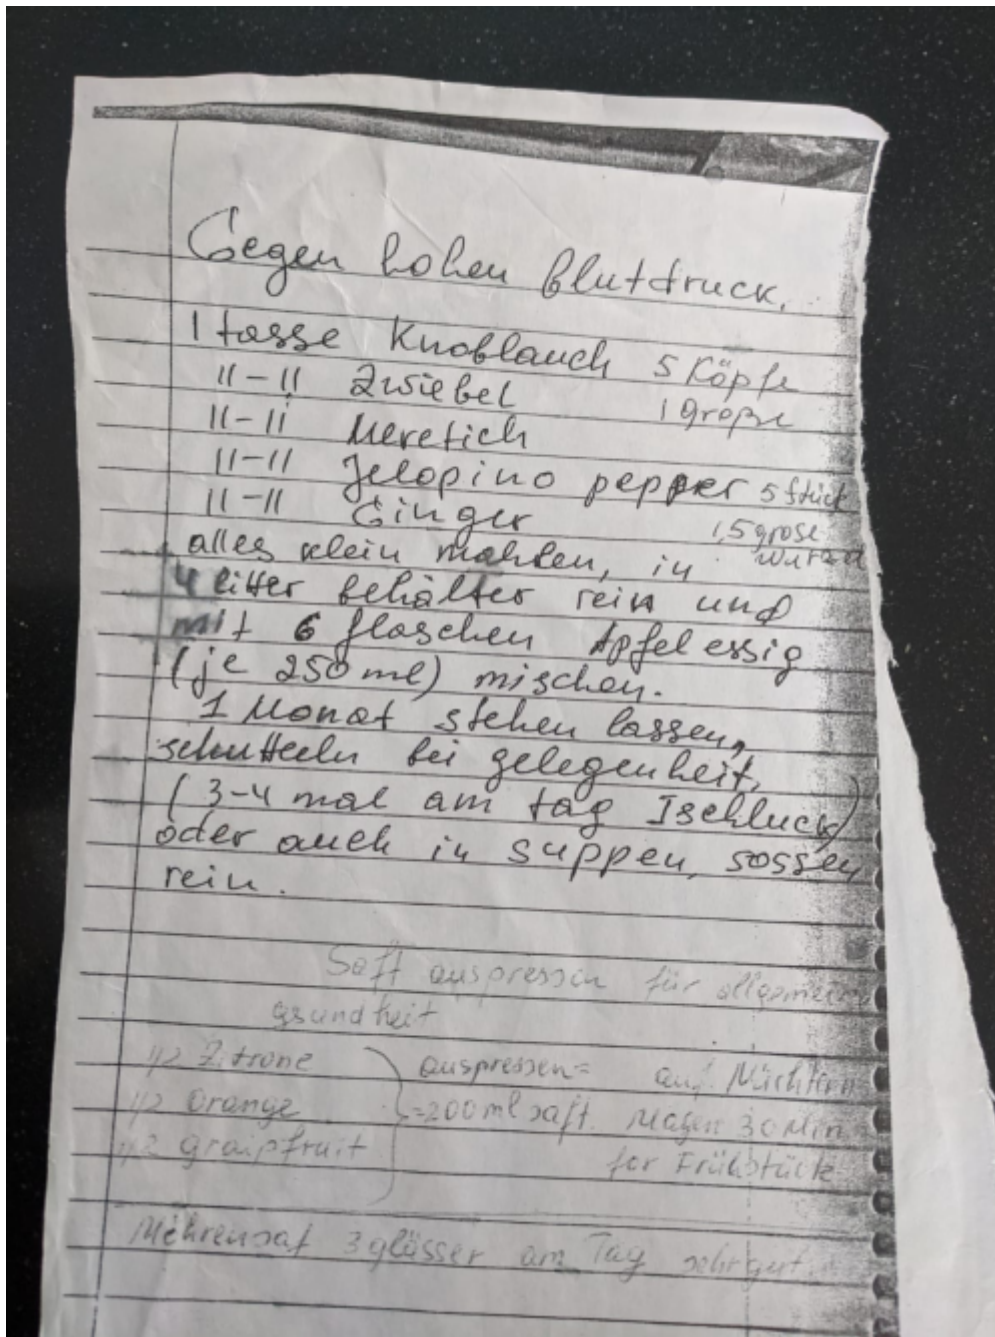 Gegen hohen Blutdruck.
1 tasse Knoblauch 5 Köpfe
11-11 Zwiebel 1 große
11-11 Meretich
11-11 Jelopino pepper 5 Stück
11-11 Ginger 1,5 grose wurzel
alles klein mahlen, in
4 litter behälter rein und
mit 6 flaschen Apfelessig
(je 250 ml) mischen.
1 Monat stehen lassen,
schutteln bei gelegenheit,
(3-4 mal am tag 1 schluck)
oder auch in suppen, sossen
rein.
Saft auspressen für allgemein
gsundheit
1/2 Zitrone auspressen= auf Nüchtern
1/2 orange =200 ml saft. Magen 30 Min
1/2 graipfruit for Frühstück
Möhrensaf 3 glässer am Tag sehr gut.